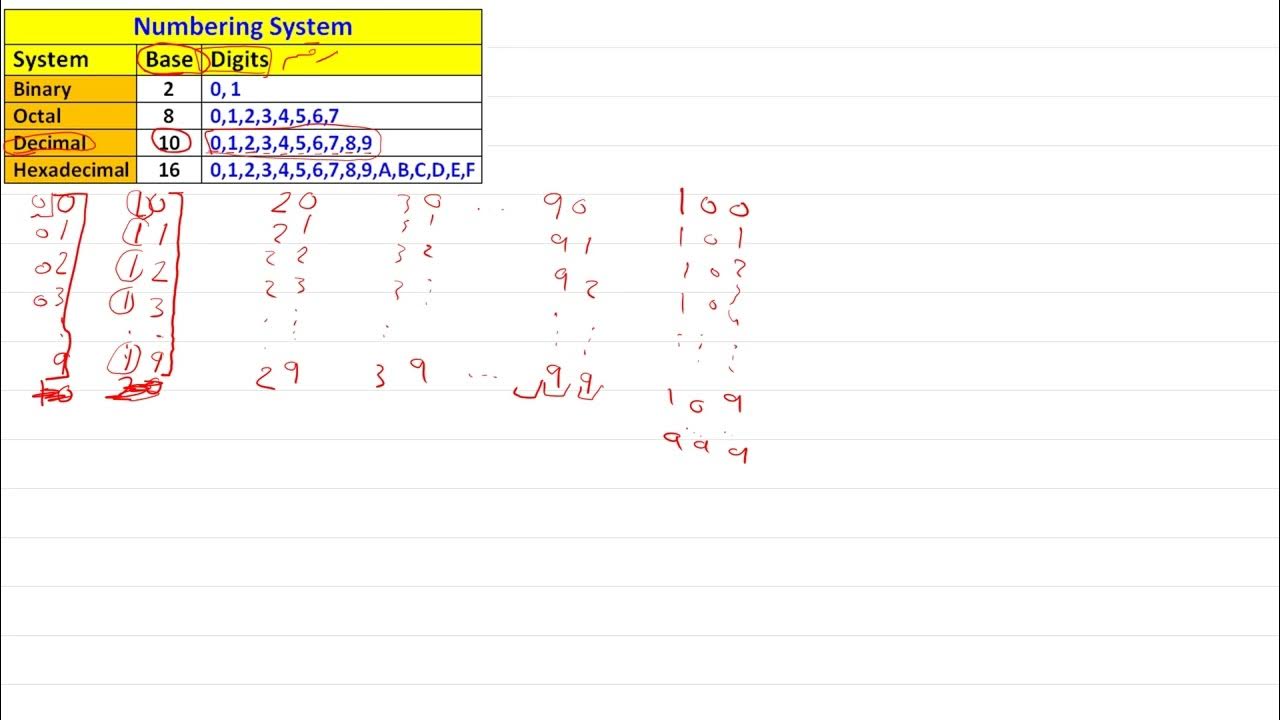 Numbering System
System Base Digits رقم
Binary 2 0, 1
Octal 8 0,1,2,3,4,5,6,7
Decimal 10 0,1,2,3,4,5,6,7,8,9
Hexadecimal 16 0,1,2,3,4,5,6,7,8,9,A,B,C,D,E,F
00 10 20 30 ... 90 100
01 11 21 31 91 101
02 12 22 32 92 102
03 13 23 3 103
9 19 29 39 ... 99
109
999